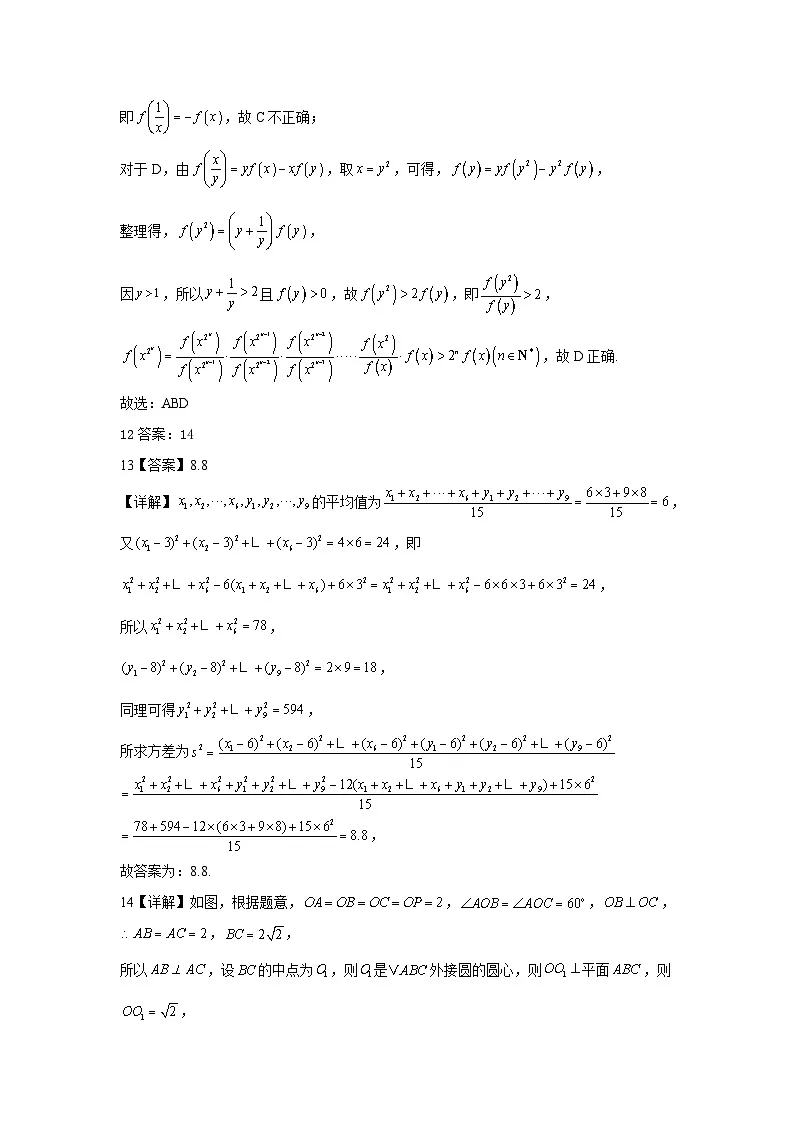 即 f(1/x) = −f(x)，故 C 不正确；
对于 D，由 f(x/y) = yf(x) − xf(y)，取 x = y²，可得，f(y) = yf(y²) − y²f(y)，
整理得，f(y²) = (y + 1/y) f(y)，
因 y > 1，所以 y + 1/y > 2 且 f(y) > 0，故 f(y²) > 2f(y)，即 f(y²)/f(y) > 2，
f(x^(2^n)) = f(x^(2^n))/f(x^(2^(n−1))) · f(x^(2^(n−1)))/f(x^(2^(n−2))) · f(x^(2^(n−2)))/f(x^(2^(n−3))) ····· f(x²)/f(x) · f(x) > 2ⁿ f(x)(n∈N*)，故 D 正确.
故选：ABD
12 答案：14
13【答案】8.8
【详解】x₁,x₂,···,x₆,y₁,y₂,···,y₉ 的平均值为 (x₁+x₂+···+x₆+y₁+y₂+···+y₉)/15 = (6×3+9×8)/15 = 6，
又 (x₁−3)²+(x₂−3)²+∟+(x₆−3)² = 4×6 = 24，即
x₁²+x₂²+∟+x₆²−6(x₁+x₂+∟+x₆)+6×3² = x₁²+x₂²+∟+x₆²−6×6×3+6×3² = 24，
所以 x₁²+x₂²+∟+x₆² = 78，
(y₁−8)²+(y₂−8)²+∟+(y₉−8)² = 2×9 = 18，
同理可得 y₁²+y₂²+∟+y₉² = 594，
所求方差为 s² = ((x₁−6)²+(x₂−6)²+∟+(x₆−6)²+(y₁−6)²+(y₂−6)²+∟+(y₉−6)²)/15
= (x₁²+x₂²+∟+x₆²+y₁²+y₂²+∟+y₉²−12(x₁+x₂+∟+x₆+y₁+y₂+∟+y₉)+15×6²)/15
= (78+594−12×(6×3+9×8)+15×6²)/15 = 8.8，
故答案为：8.8.
14【详解】如图，根据题意，OA = OB = OC = OP = 2，∠AOB = ∠AOC = 60°，OB⊥OC，
∴ AB = AC = 2，BC = 2√2，
所以 AB⊥AC，设 BC 的中点为 O₁，则 O₁ 是 ∨ABC 外接圆的圆心，则 OO₁⊥平面 ABC，则
OO₁ = √2，